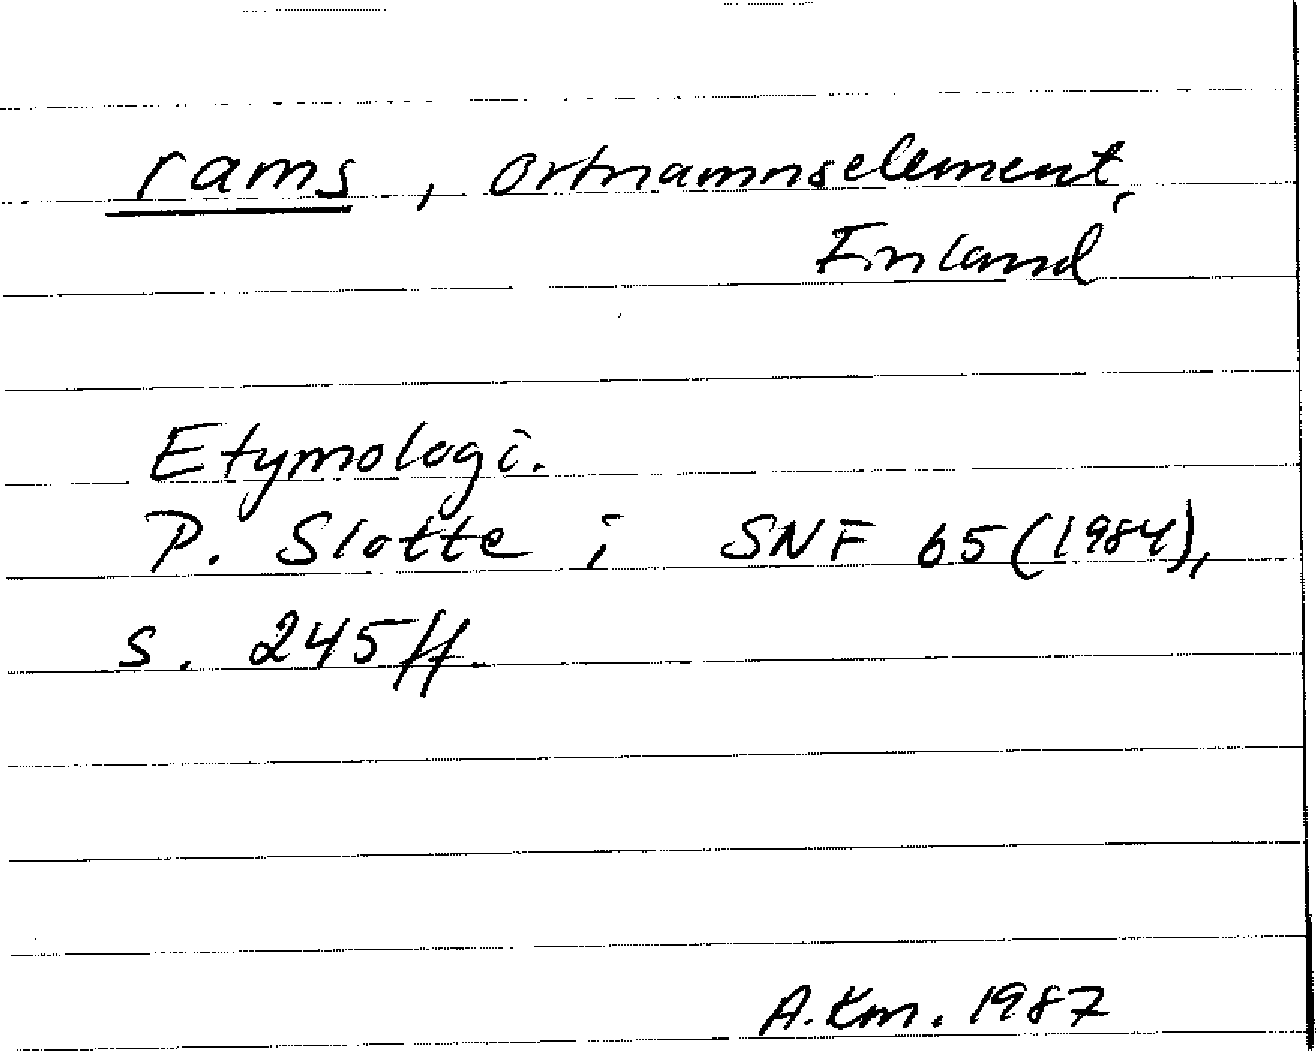 rams, ortnamnselement,
Finland
Etymologi.
P. Slotte i SNF 65 (1984),
s. 245 ff.
A.Km. 1987